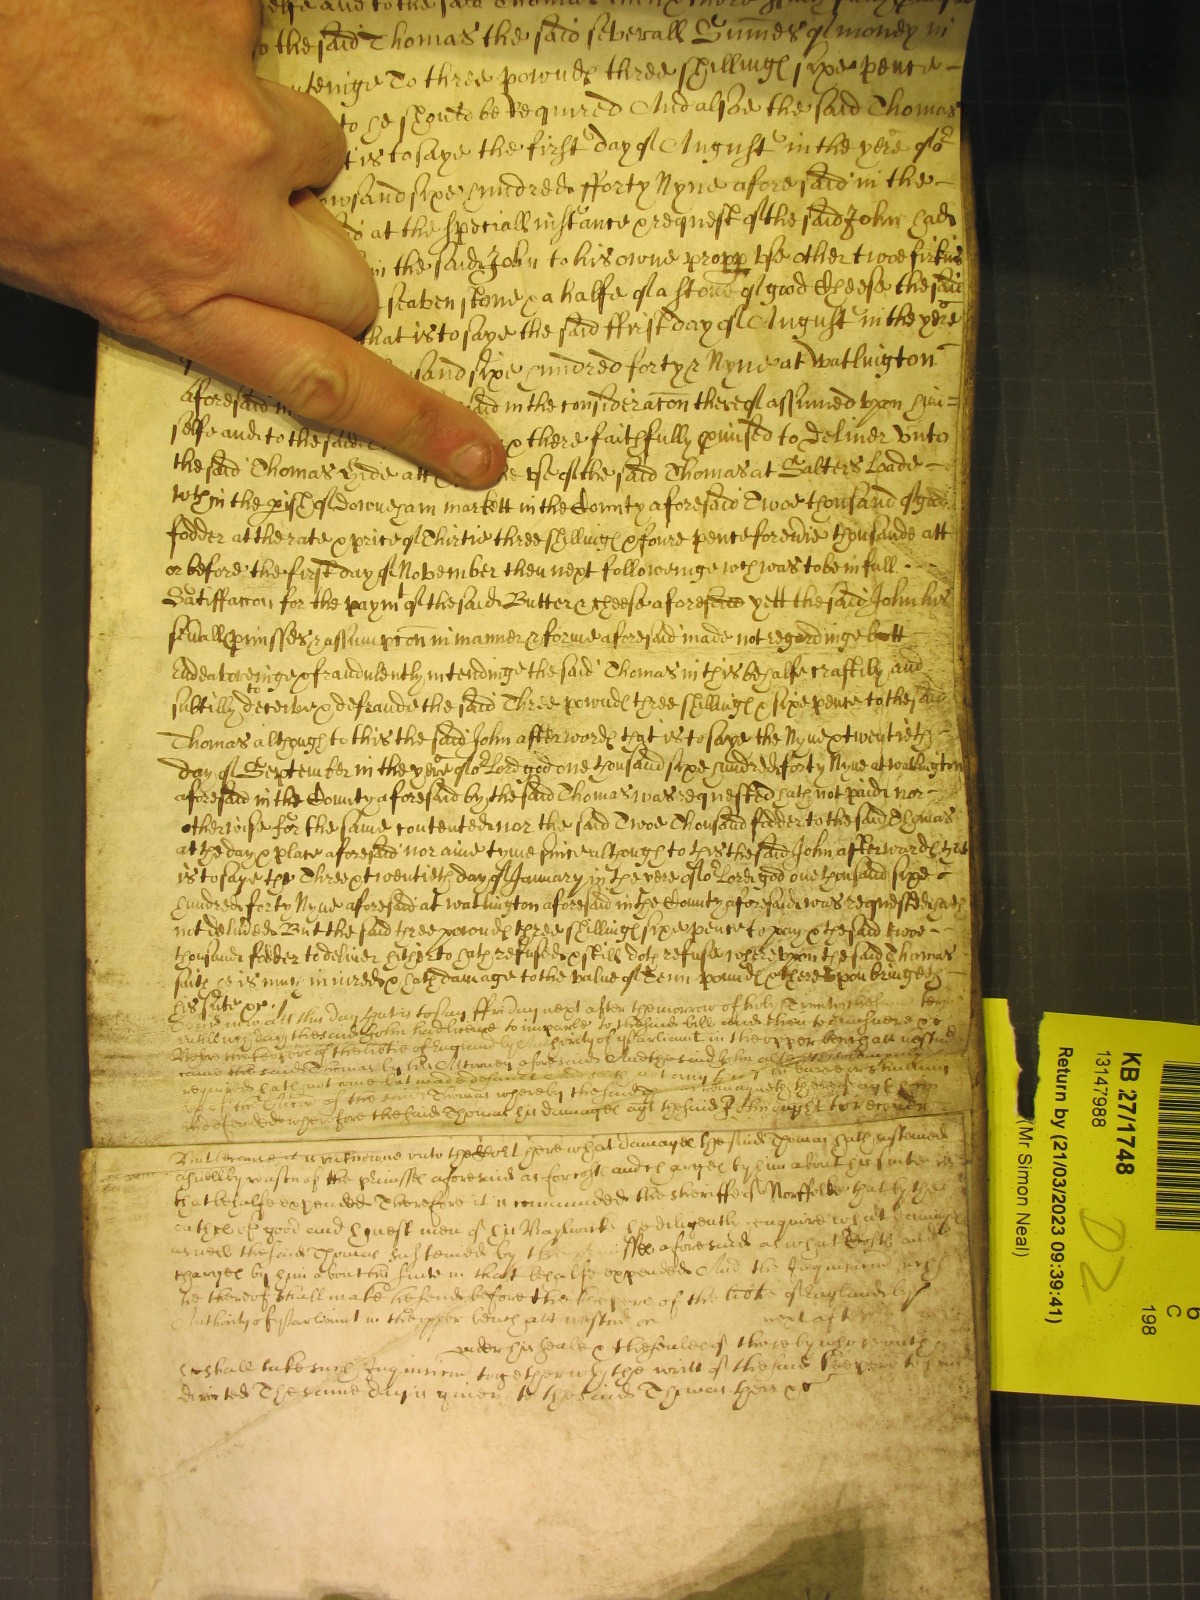 selfe and to the said Thomas then & there
to the said Thomas the said severall Summes of money in
To three powndℓ three shillingℓ sixe pence
to he should be required And alsoe the said Thomas
t is to saye the first day of August in the yere of oʳ
owsand sixe hundred fforty Nyne aforesaid in the
at the speciall instance & request of the said John had
the said John to his owne propp use other twoe firkins
seaven stone & a halfe of a stone of good Cheese the said
that is to saye the said ffirst day of August in the yere
sand sixe hundred forty & Nyne at Watlington
aforesaid in said in the consideracōn thereof assumed upon him
selfe and to the said & there faithfully pmised to deliver unto
the said Thomas Hyde att the use of the said Thomas at Salters Loade
wᶜʰin the pish of Downeham markett in the County aforesaid Twoe thousand of
fodder at the rate & price of Thirtie three shillingℓ & foure pence for everie thousande att
or before the first day of November then next followenige wᶜʰ was to be in full
Satisfaccon for the paymᵗ of the said Butter & cheese aforesaid yett the said John his
sevall pmisses & assumpcōn in manner & forme aforesaid made not regardinge butt
Endeavoringe & fraudulently intendinge the said Thomas in this behalfe craftily and
subtilly to deceive & defraude the said Three powndℓ three shillingℓ & sixe pence to the said
Thomas although to this the said John afterwardℓ that is to saye the Nyne & twentieth
day of September in the yere of oʳ Lord god one thousand sixe hundred forty Nyne at watlington
aforesaid in the County aforesaid by the said Thomas was requested hath not paid nor
otherwise for the same contented nor the said Twoe Thousand fodder to the said Thomas
at the day & place aforesaid nor anie tyme since although to this the said John afterwardℓ that
is to saye the Three & twentieth day of January in the yere of oʳ Lord god one thousand sixe
hundred forty Nyne aforesaid at watlington aforesaid in the County aforesaid was requested hath
not delivᵉed But the said three powndℓ three shillingℓ sixe pence to pay & the said twoe
thousand fodder to deliver hitherto hath refused & still doth refuse whereupon the said Thomas
saith he is much iniured & hath damage to the value of Tenn poundℓ & thereupon bringeth
his sute &c
And now att this day that is to say ffriday next after the morrow of holy Trinity
untill wᶜʰ day the said John had licence to imparle to the said bill and then to answere &c
Before the keepers of the libtie of England by Authority of parliament in the upper bench att westm
came the said Thomas by his Attorney aforesaid And the said John although solempnly
required hath not come but made default
the said Thomas whereby the said
wherefore the said Thomas his damages agt the said John ought to recover
But because it is unknowne unto the Court here what damages the said Thomas hath susteined
aswell by reason of the pmisses aforesaid as for costℓ and chargeℓ by him about his suite in
that behalfe expended Therefore it is commanded the sheriffe of Norffolke that by the
oathe of good and honest men of his Baylwicke he diligently enquire what damages
aswell the said Thomas susteined by the aforesaid as what Costℓ and
chargeℓ by him about his suite in that behalfe expended And the Inquisicion wᶜʰ
he thereof shall make he send before the keepers of the libtie of England by
Authority of parliamt in the upper bench att westm on next after
under his seale & the seales of those by whose oath
he shall take such Inquisicion together with the writt of the said keepers to him
directed The same day is given to the said Thomas here &c
KB 27/1748
13147988
Return by (21/03/2023 09:39:41)
(Mr Simon Neal)
D2
6
C
198